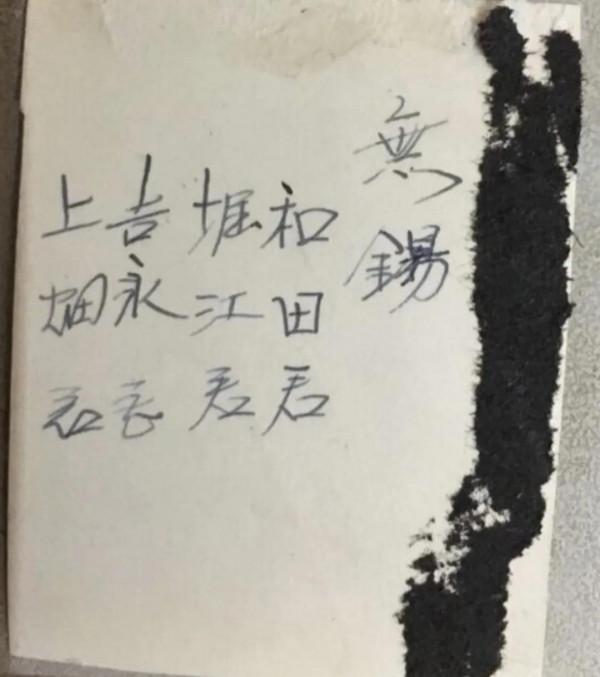 無錫
和田君
堀江君
吉永君
上畑君